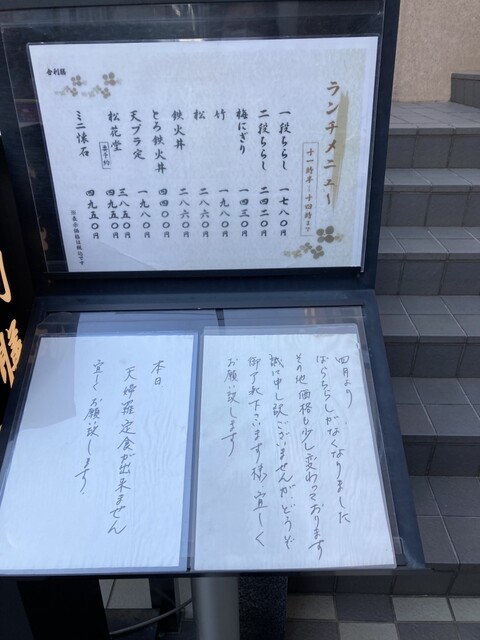 ランチメニュー
十一時半~十四時まで
一段ちらし 一七八〇円
二段ちらし 二四二〇円
梅にぎり 一四三〇円
竹 一九八〇円
松 二八六〇円
鉄火丼 二八六〇円
とろ鉄火丼 四四〇〇円
天プラ定 一九八〇円
松花堂 要予約 三八五〇円
ミニ懐石 四九五〇円
四九五〇円
※表示価格は税込です
舎利膳
四月より
ばらちらしがなくなりました
その他価格も少し変わっております
誠に申し訳ございませんがどうぞ
御了承下さいます様、宜しく
お願い致します
本日
天婦羅定食が出来ません
宜しくお願い致します。
利膳